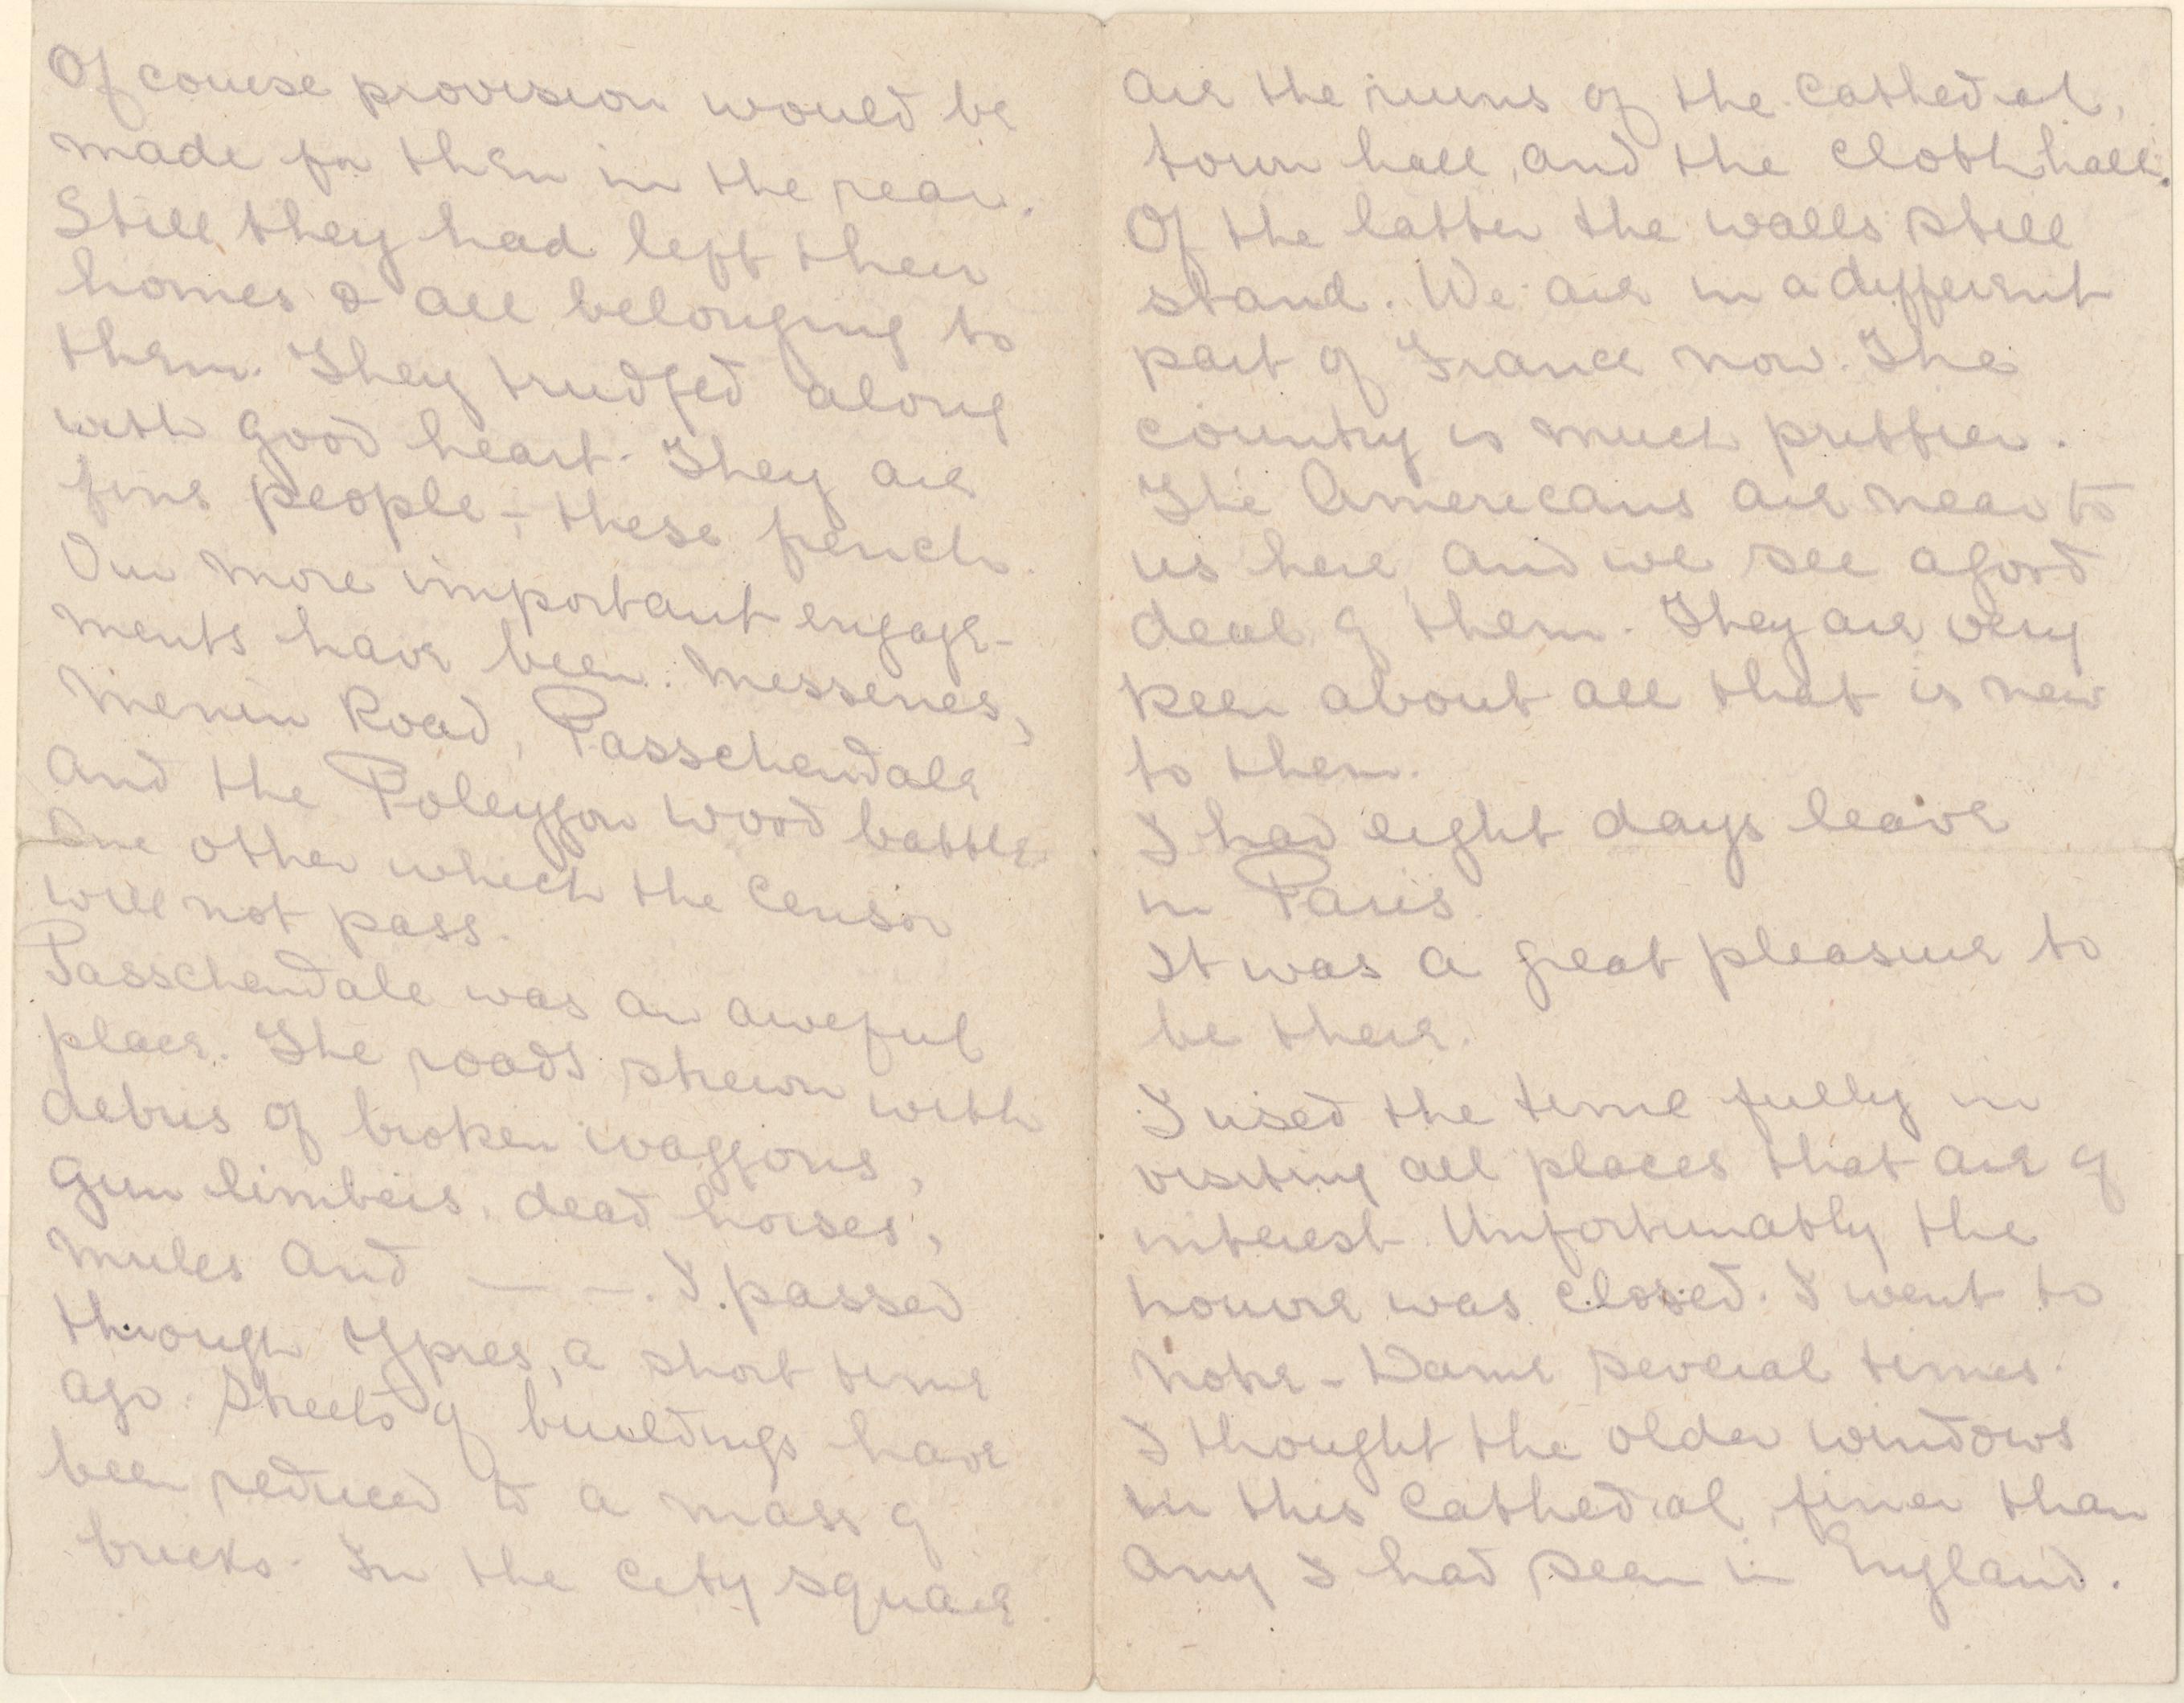 Of course provision would be
made for them in the rear.
Still they had left their
homes & all belonging to
them. They trudged along
with good heart. They are
fine people - these french
Our more important engage-
ments have been: Messenes,
Menin Road, Passchendale
and the Poleygon wood battle
One other which the Censor
will not pass.
Passchendale was an aweful
place. The roads strewn with
debris of broken waggons,
gun limbers, dead horses,
mules and — —. I passed
through Ypres, a short time
ago. Streets of buildings have
been reduced to a mass of
bricks. In the city square
are the ruins of the Cathedral,
town hall, and the Cloth hall.
Of the latter the walls still
stand. We are in a different
part of France now. The
country is much prettier.
The Americans are near to
us here and we see a good
deal of them. They are very
keen about all that is new
to them.
I had eight days leave
in Paris
It was a great pleasure to
be there.
I used the time fully in
visiting all places that are of
interest. Unfortunatly the
Louvre was closed. I went to
Notre-Dame several times.
I thought the older windows
in this Cathedral, finer than
any I had seen in England.